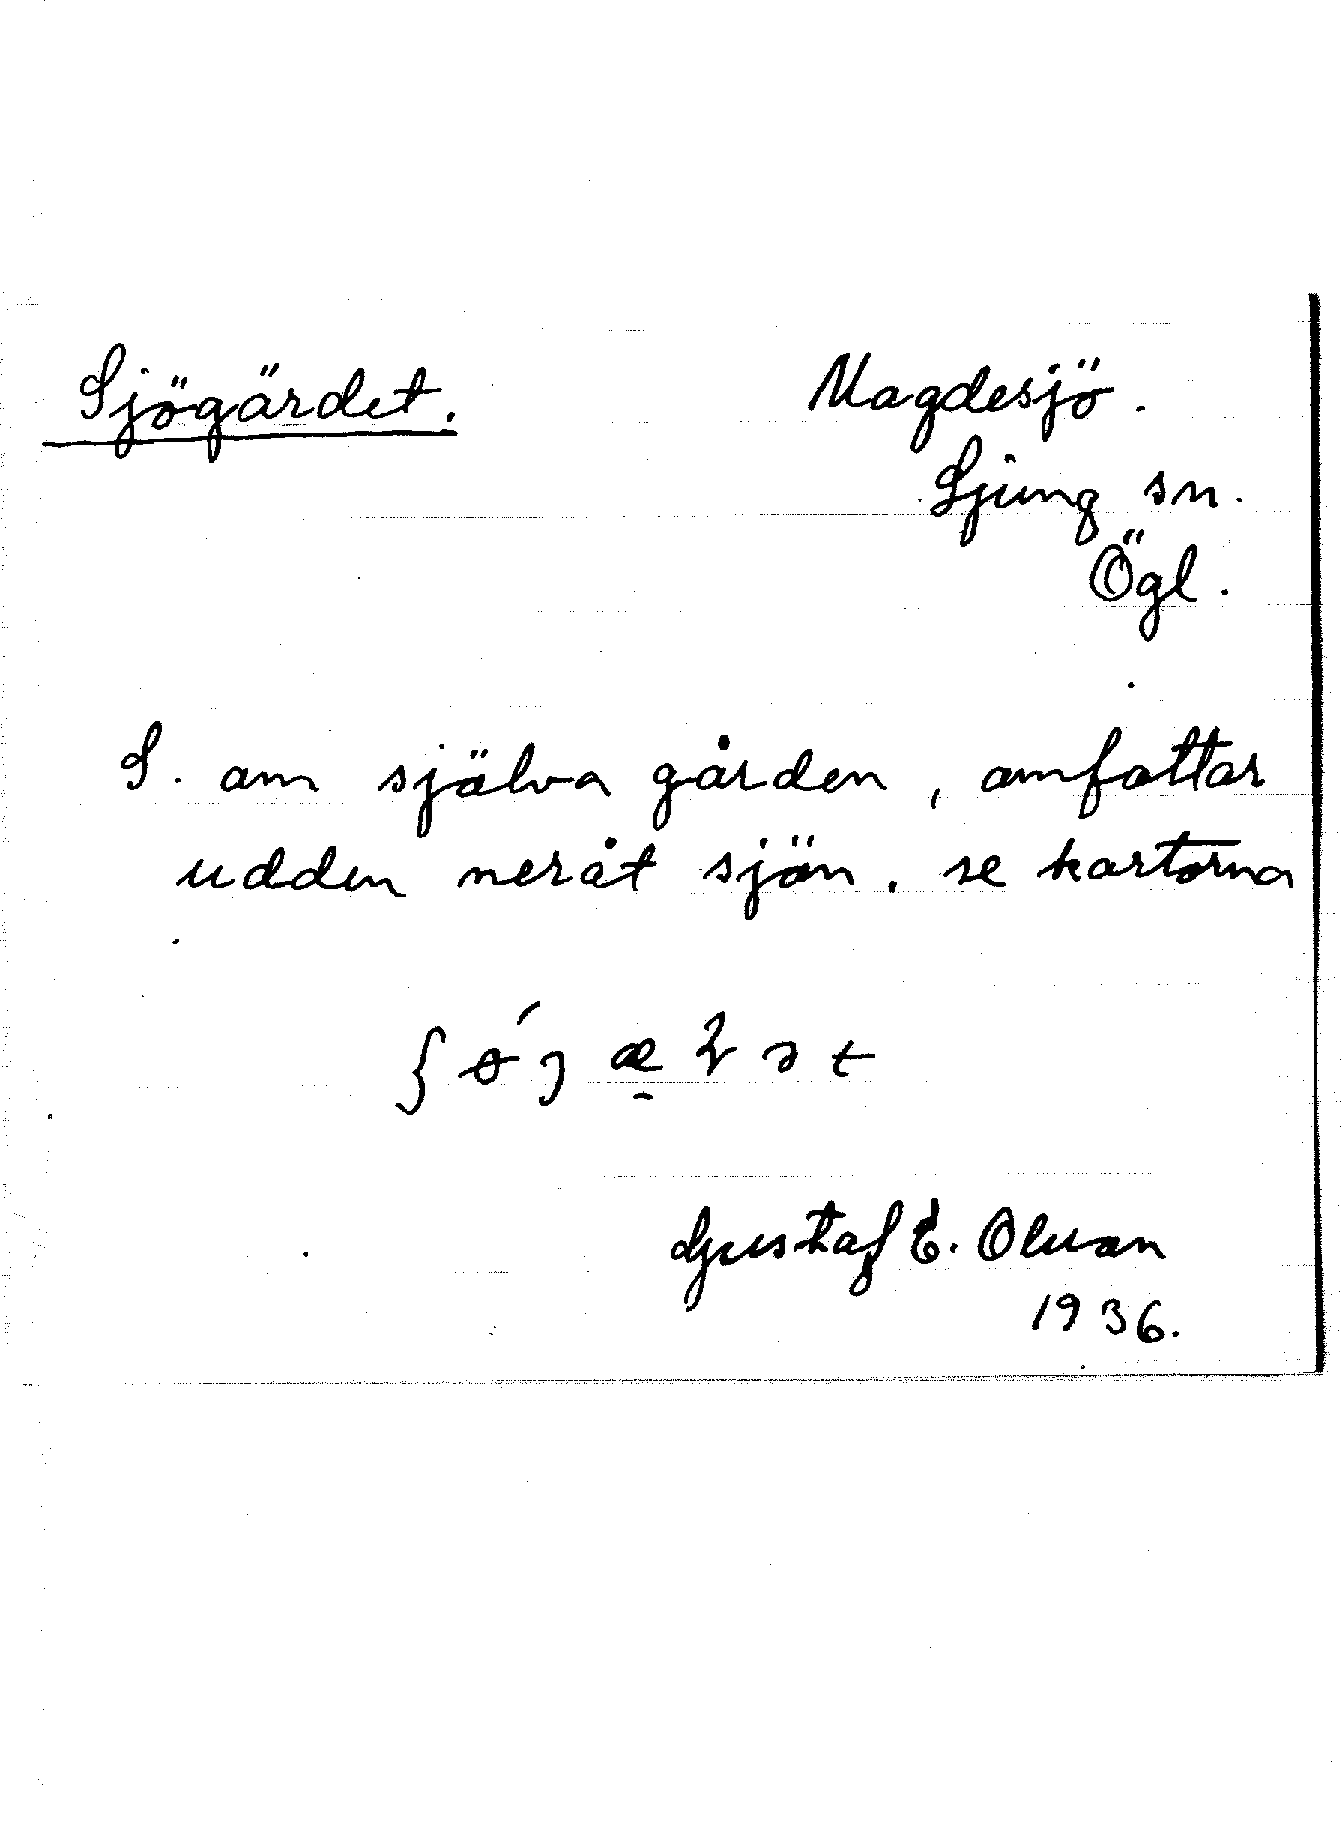 Sjögärdet.
Magdesjö.
Ljung sn.
Ögl.
S. om själva gården, omfattar
udden neråt sjön. se kartorna
Gustaf E. Olsson
1936.